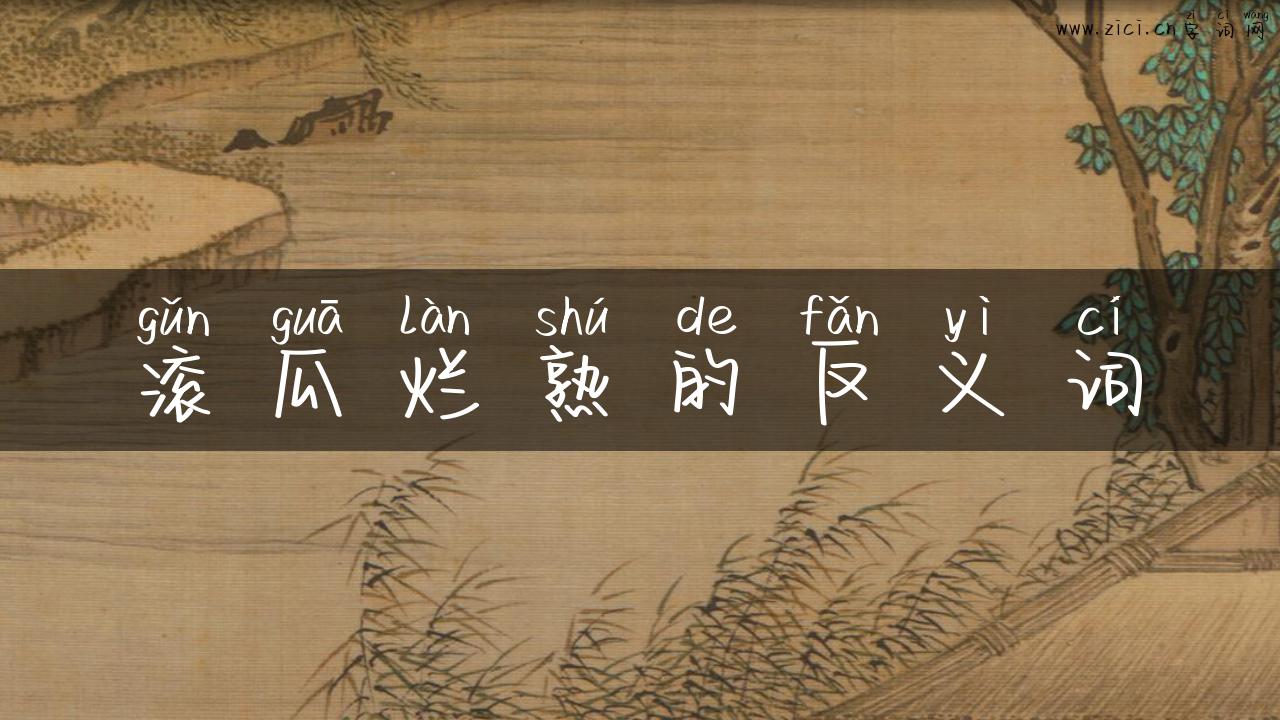 zì cí wǎng
www.zici.cn字词网
gǔn guā làn shú de fǎn yì cí
滚瓜烂熟的反义词